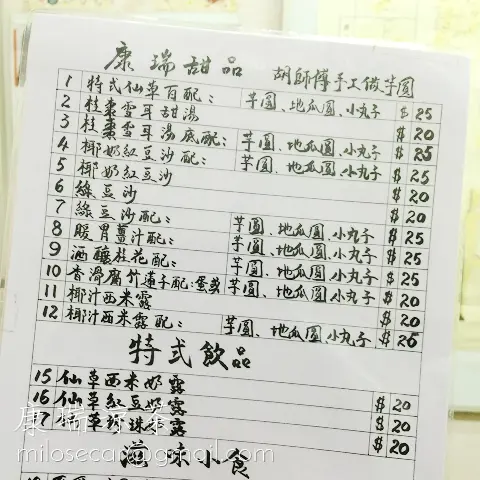 康瑞甜品 胡師傅手工做芋圓
1 特式仙草百配： 芋圓、地瓜圓、小丸子 $25
2 桂棗雪耳甜湯 $20
3 桂棗雪耳湯底配： 芋圓、地瓜圓、小丸子 $25
4 椰奶紅豆沙配： 芋圓、地瓜圓、小丸子 $25
5 椰奶紅豆沙 $20
6 綠豆沙 $20
7 綠豆沙配： 芋圓、地瓜圓、小丸子 $25
8 暖胃薑汁配： 芋圓、地瓜圓、小丸子 $25
9 酒釀桂花配： 芋圓、地瓜圓、小丸子 $25
10 香滑腐竹蓮子配：蛋或芋圓、地瓜圓、小丸子 $25
11 椰汁西米露 $20
12 椰汁西米露配： 芋圓、地瓜圓、小丸子 $25
特式飲品
15 仙草西米奶露 $20
16 仙草紅豆奶露 $20
17 仙草珍珠奶露 $20
滋味小食
milosecan@gmail.com